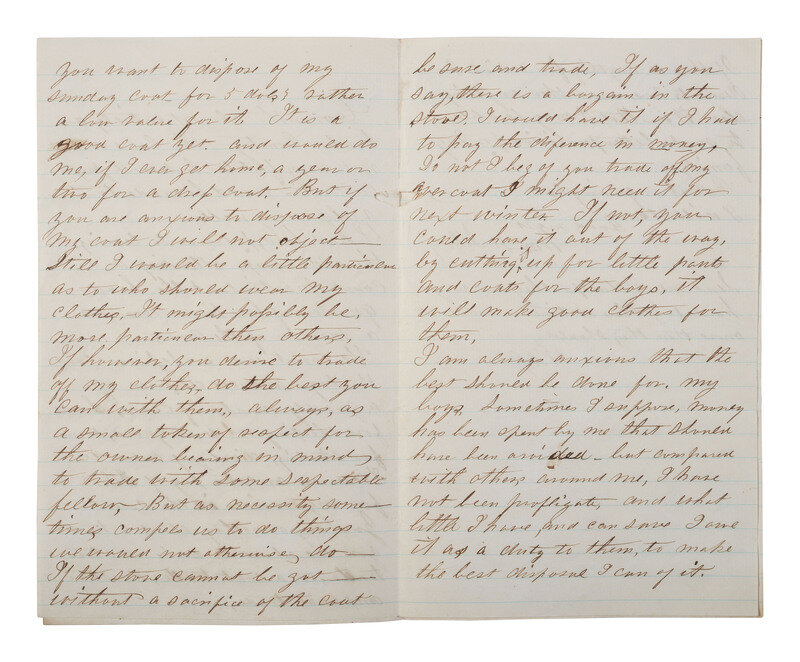 you want to dispose of my
sunday coat for 5 dols; rather
a low value for it. It is a
good coat yet. and would do
me, if I ever get home, a year or
two for a dress coat. But if
you are anxious to dispose of
my coat I will not object
Still I would be a little particular
as to who should wear my
clothes, It might possibly be,
more particular then others,
If however, you desire to trade
off my clothes, do the best you
can with them, always, as
a small token of respect for
the owner bearing in mind
to trade with some respectable
fellow, But as necessity some-
times compels us to do things
we would not otherwise, do—
If the stove cannot be got
without a sacrifice of the coat
be sure and trade, If as you
say, there is a bargain in the
stove, I would have it if I had
to pay the diference in money,
Do not I beg of you trade off my
over coat I might need it for
next winter If not, you
could have it out of the way,
by cutting up for little pants
and coats for the boys, it
will make good clothes for
them,
I am always anxious that the
best should be done for my
boys, Sometimes I suppose, money
has been spent by me that should
have been avoided - but compared
with others around me, I have
not been profligate, and what
little I have and can save I owe
it as a duty to them, to make
the best disposal I can of it.